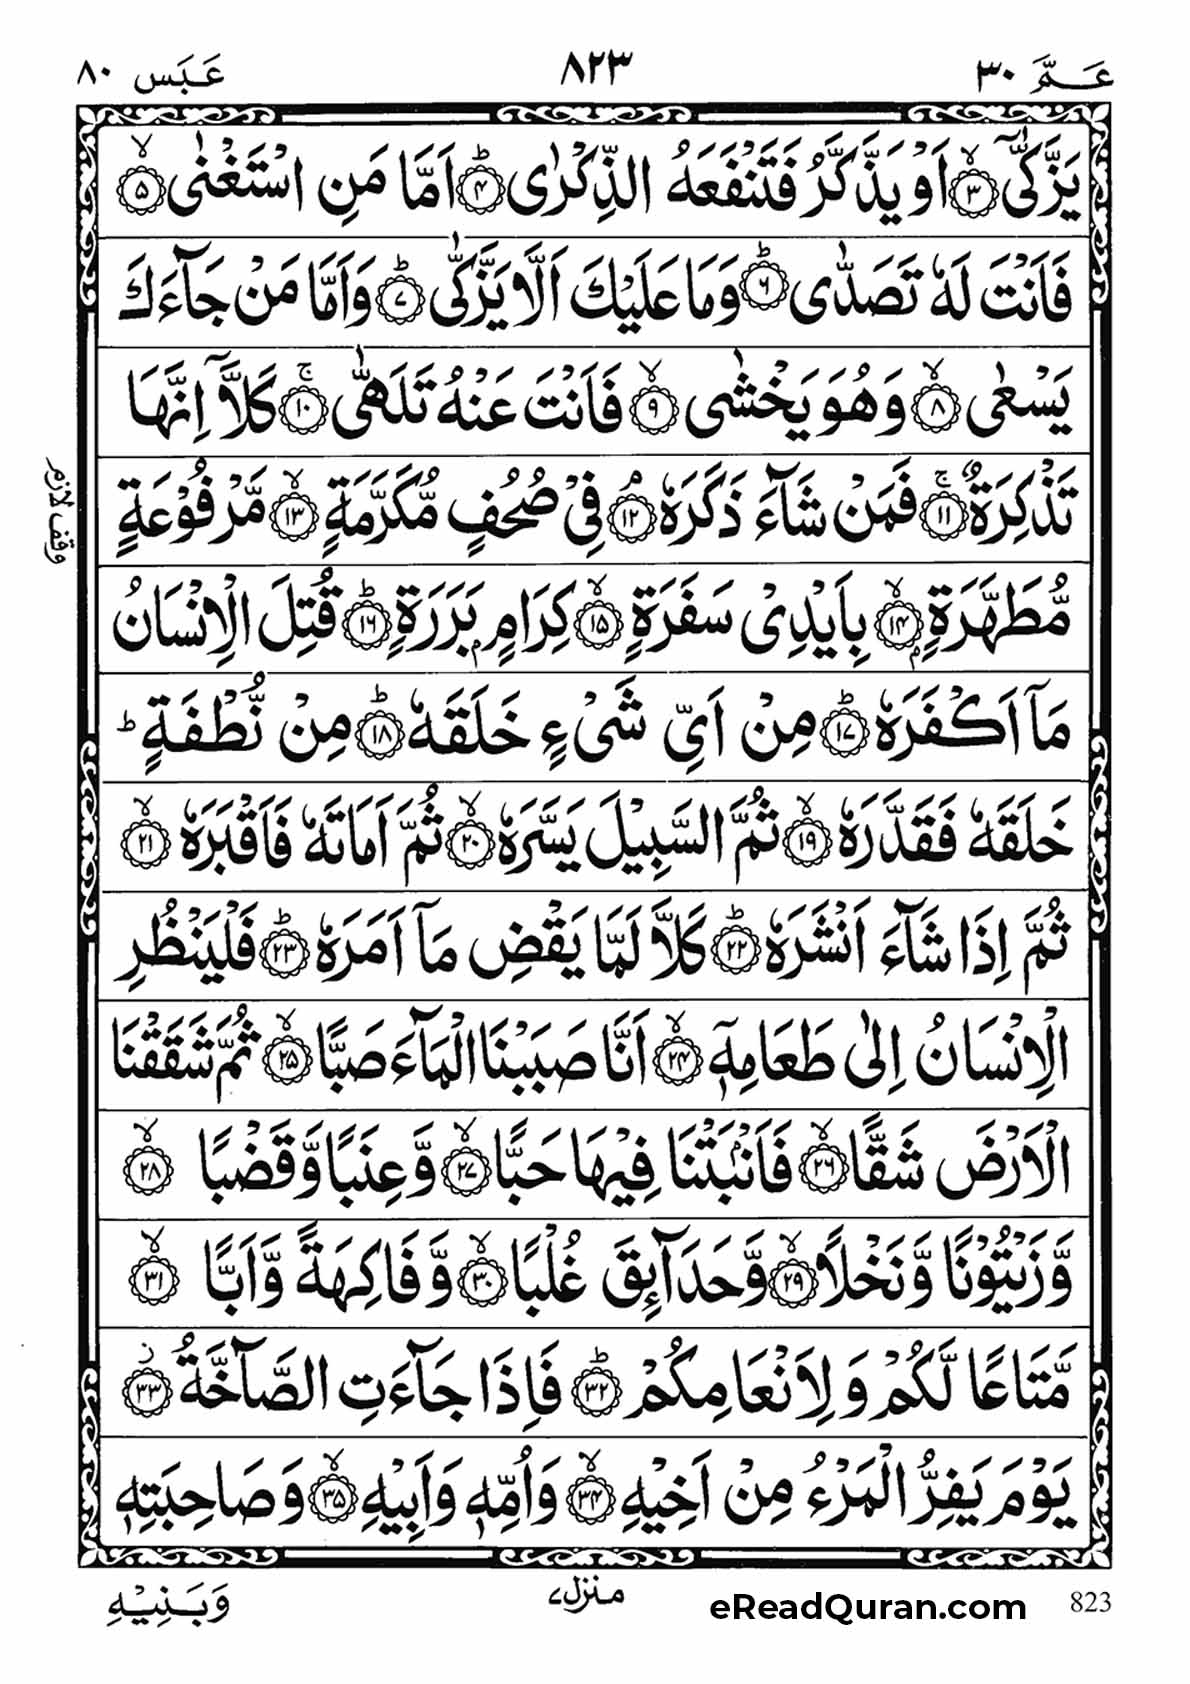 عَمَّ ٣٠
٨٢٣
عَبَسَ ٨٠
يَزَّكّٰىۤ ۙ﴿۳﴾ اَوْ يَذَّكَّرُ فَتَنْفَعَهُ الذِّكْرٰى ؕ﴿۴﴾ اَمَّا مَنِ اسْتَغْنٰى ۙ﴿۵﴾
فَاَنْتَ لَهٗ تَصَدّٰى ؕ﴿۶﴾ وَمَا عَلَيْكَ اَلَّا يَزَّكّٰى ؕ﴿۷﴾ وَاَمَّا مَنْ جَآءَكَ
يَسْعٰى ۙ﴿۸﴾ وَهُوَ يَخْشٰى ۙ﴿۹﴾ فَاَنْتَ عَنْهُ تَلَهّٰى ۚ﴿۱۰﴾ كَلَّاۤ اِنَّهَا
تَذْكِرَةٌ ۚ﴿۱۱﴾ فَمَنْ شَآءَ ذَكَرَهٗ ۘ﴿۱۲﴾ فِىْ صُحُفٍ مُّكَرَّمَةٍ ۙ﴿۱۳﴾ مَّرْفُوْعَةٍ
وقف لازم
مُّطَهَّرَةٍۭ ۙ﴿۱۴﴾ بِاَيْدِىْ سَفَرَةٍ ۙ﴿۱۵﴾ كِرَامٍۭ بَرَرَةٍ ؕ﴿۱۶﴾ قُتِلَ الْاِنْسَانُ
مَاۤ اَكْفَرَهٗ ؕ﴿۱۷﴾ مِنْ اَىِّ شَىْءٍ خَلَقَهٗ ؕ﴿۱۸﴾ مِنْ نُّطْفَةٍ ؕ
خَلَقَهٗ فَقَدَّرَهٗ ۙ﴿۱۹﴾ ثُمَّ السَّبِيْلَ يَسَّرَهٗ ۙ﴿۲۰﴾ ثُمَّ اَمَاتَهٗ فَاَقْبَرَهٗ ۙ﴿۲۱﴾
ثُمَّ اِذَا شَآءَ اَنْشَرَهٗ ؕ﴿۲۲﴾ كَلَّا لَمَّا يَقْضِ مَاۤ اَمَرَهٗ ؕ﴿۲۳﴾ فَلْيَنْظُرِ
الْاِنْسَانُ اِلٰى طَعَامِهٖۤ ۙ﴿۲۴﴾ اَنَّا صَبَبْنَا الْمَآءَ صَبًّا ۙ﴿۲۵﴾ ثُمَّ شَقَقْنَا
الْاَرْضَ شَقًّا ۙ﴿۲۶﴾ فَاَنْۢبَتْنَا فِيْهَا حَبًّا ۙ﴿۲۷﴾ وَّعِنَبًا وَّقَضْبًا ۙ﴿۲۸﴾
وَّزَيْتُوْنًا وَّنَخْلًا ۙ﴿۲۹﴾ وَّحَدَآئِقَ غُلْبًا ۙ﴿۳۰﴾ وَّفَاكِهَةً وَّاَبًّا ۙ﴿۳۱﴾
مَّتَاعًا لَّكُمْ وَلِاَنْعَامِكُمْ ؕ﴿۳۲﴾ فَاِذَا جَآءَتِ الصَّآخَّةُ ز﴿۳۳﴾
يَوْمَ يَفِرُّ الْمَرْءُ مِنْ اَخِيْهِ ۙ﴿۳۴﴾ وَاُمِّهٖ وَاَبِيْهِ ۙ﴿۳۵﴾ وَصَاحِبَتِهٖ
وَبَنِيْهِ
منزل ۷
eReadQuran.com
823